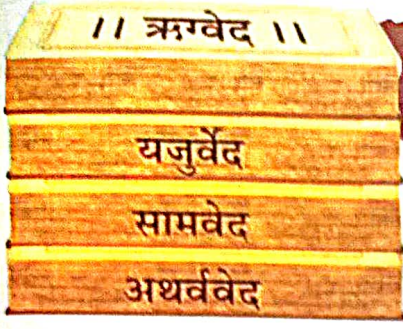 ।। ऋग्वेद ।।
यजुर्वेद
सामवेद
अथर्ववेद